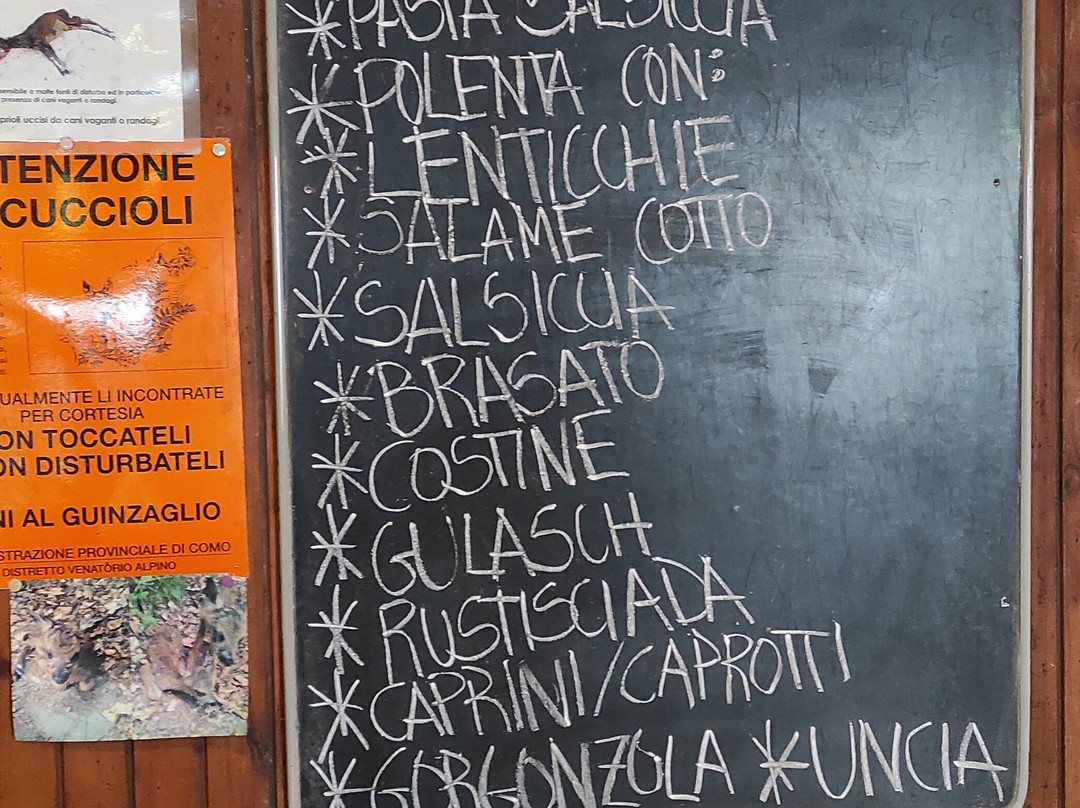 sensibile a molte fonti di disturbo ed in particolare
presenza di cani vaganti o randagi.
prioli uccisi da cani vaganti o randagi
TENZIONE
CUCCIOLI
UALMENTE LI INCONTRATE
PER CORTESIA
ON TOCCATELI
ON DISTURBATELI
NI AL GUINZAGLIO
STRAZIONE PROVINCIALE DI COMO
DISTRETTO VENATORIO ALPINO
* PASTA SALSICCIA
* POLENTA CON:
* LENTICCHIE
* SALAME COTTO
* SALSICCIA
* BRASATO
* COSTINE
* GULASCH
* RUSTISCIADA
* CAPRINI/CAPROTTI
* GORGONZOLA * UNCIA